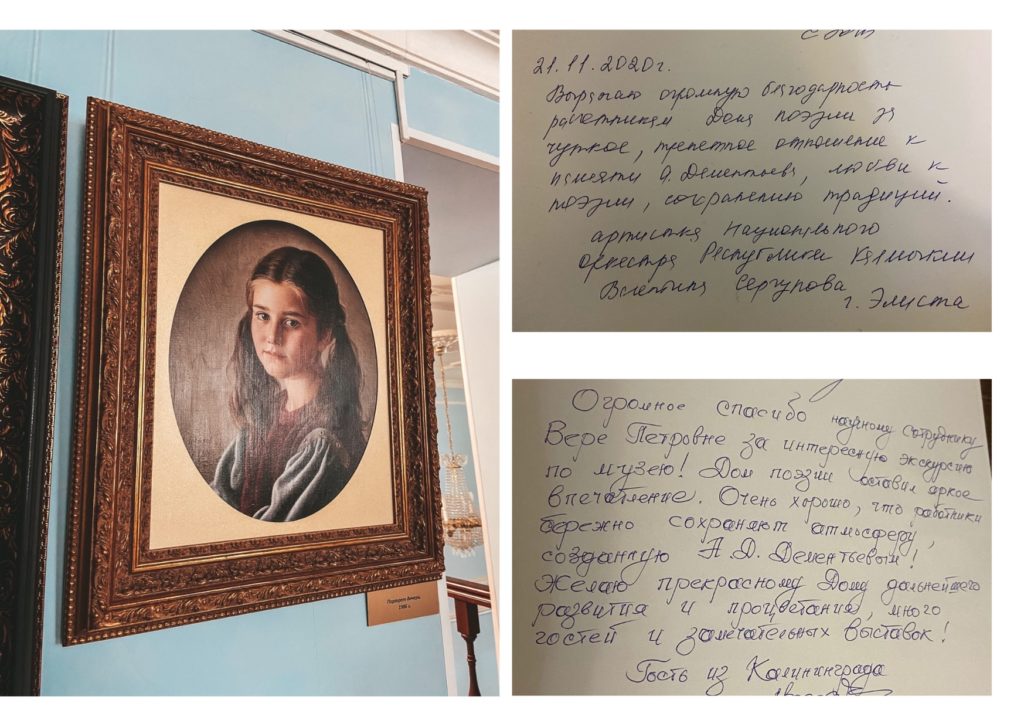 Портрет дочери
1986 г.
с
21.11.2020г.
Выражаю огромную благодарность
работникам Дома поэзии за
чуткое, трепетное отношение к
памяти А. Дементьева, любви к
поэзии, сохранению традиций.
артистка Национального
оркестра Республики Калмыкии
Валентина Сергунова
г. Элиста
Огромное спасибо научному сотруднику
Вере Петровне за интересную экскурсию
по музею! Дом поэзии оставил яркое
впечатление. Очень хорошо, что работники
бережно сохраняют атмосферу,
созданную А. Д. Дементьевым!
Желаю прекрасному Дому дальнейшего
развития и процветания, много
гостей и замечательных выставок!
Гость из Калининграда